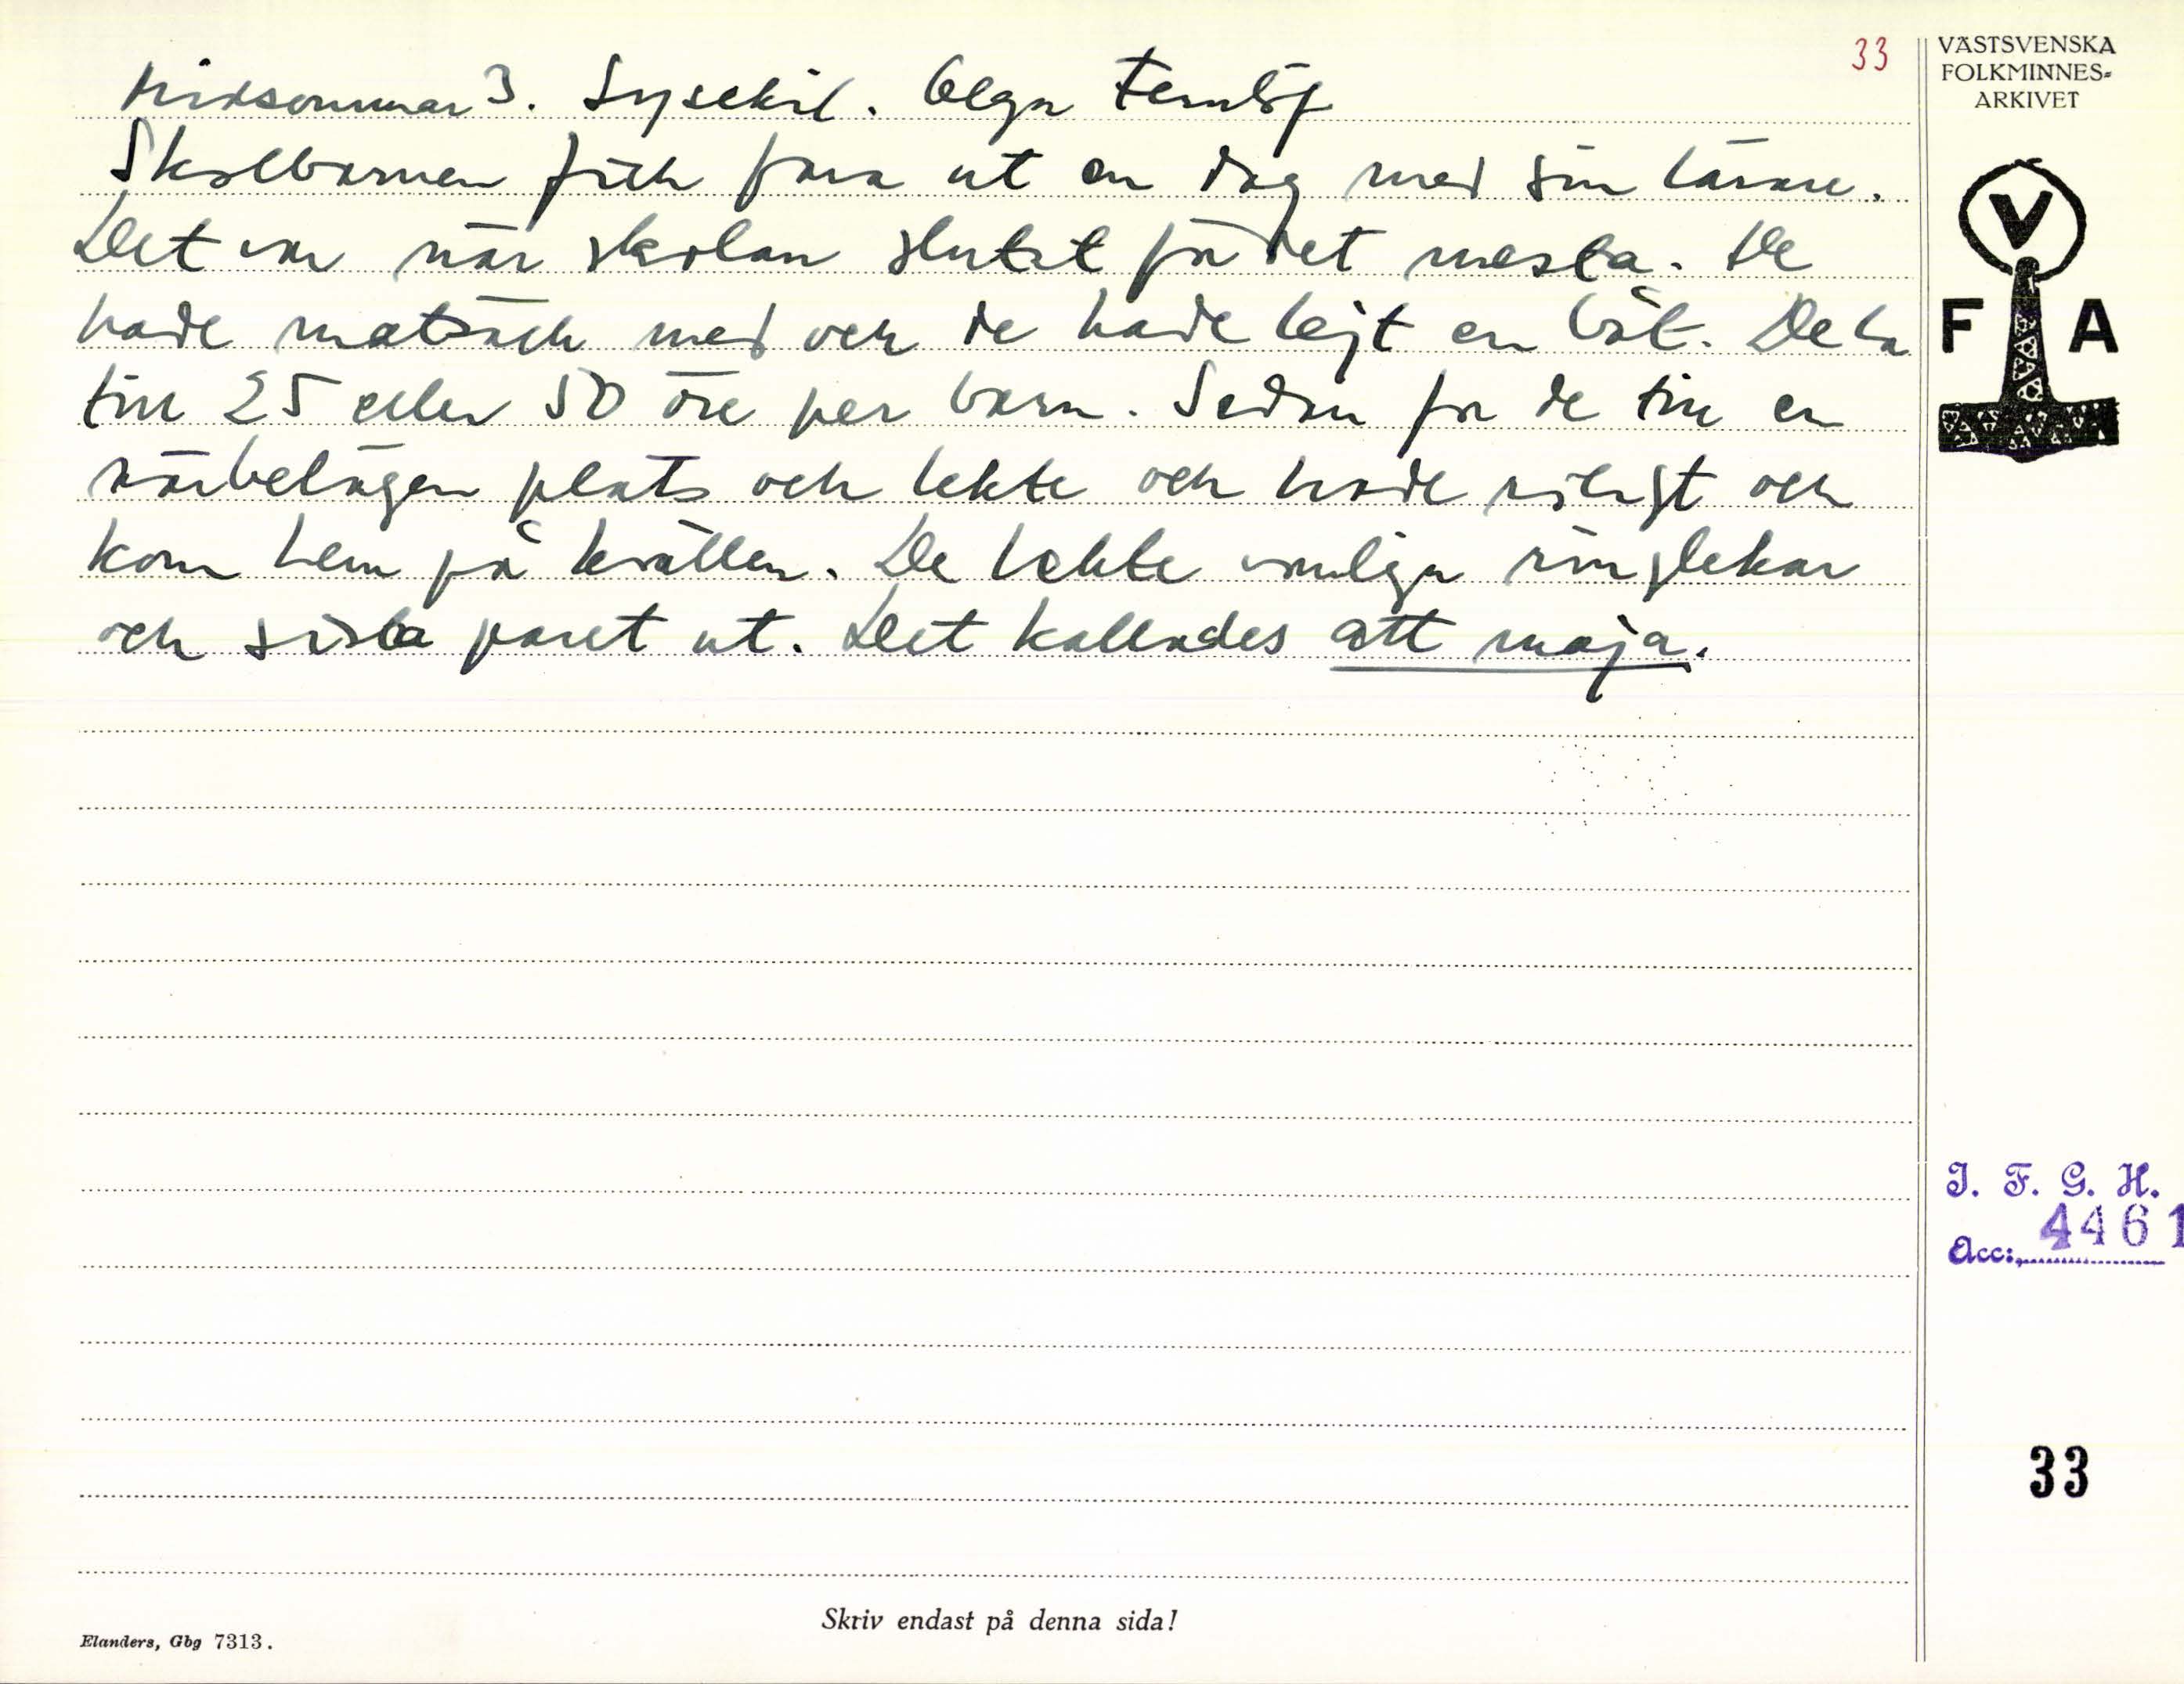 33
VÄSTSVENSKA
FOLKMINNES-
ARKIVET
Midsommar 3. Lysekil. Olga Ternlöf
Skolbarnen fick fara ut en dag med sin lärare.
Det var när skolan slutat för det mesta. De
hade matsäck med och de hade lejt en båt. De ha
till 25 eller 50 öre per barn. Sedan for de till en
närbelägen plats och lekte och hade roligt och
kom hem på kvällen. De lekte vanliga ringlekar
och sista paret ut. Det kallades att maja.
V
F A
I. F. G. H.
Acc: 4461
33
Skriv endast på denna sida!
Elanders, Gbg 7313.